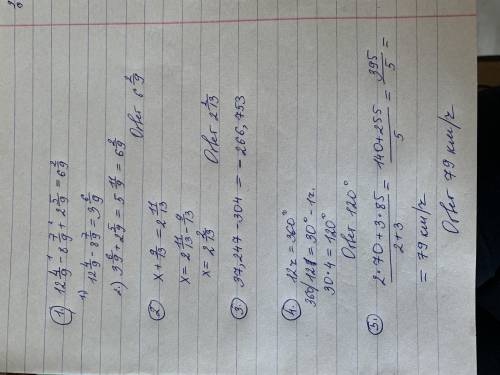 1. 12 4/9 - 8 7/9 + 2 5/9 = 6 2/9
1) 12 4/9 - 8 7/9 = 3 6/9
2) 3 6/9 + 2 5/9 = 5 11/9 = 6 2/9
Ответ 6 2/9
2. x + 9/13 = 2 11/13
x = 2 11/13 - 9/13
x = 2 2/13
Ответ 2 2/13
3. 37,247 - 304 = - 266,753
4. 12ч = 360°
360/12 = 30° - 1ч.
30 · 4 = 120°
Ответ 120°
5. (2 · 70 + 3 · 85)/(2 + 3) = (140 + 255)/5 = 395/5 =
= 79 км/ч
Ответ 79 км/ч